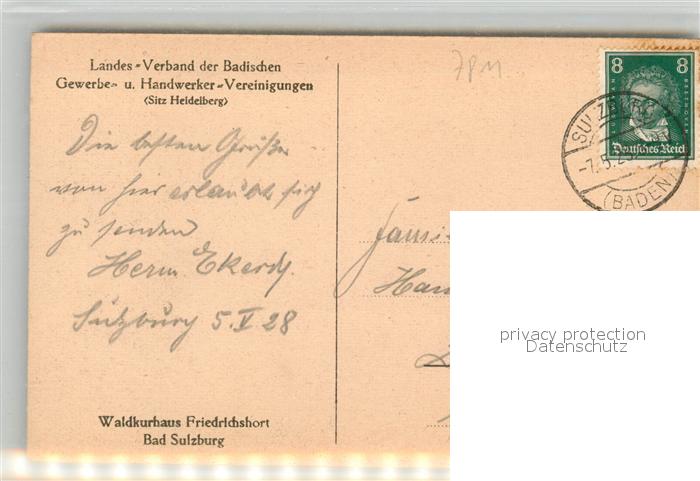 Landes-Verband der Badischen
Gewerbe- u. Handwerker-Vereinigungen
(Sitz Heidelberg)
Die besten Grüße
von hier erlaubt sich
zu senden
Herm. Ekerdt.
Sulzburg 5.V.28
Waldkurhaus Friedrichshort
Bad Sulzburg
8 8
Deutsches Reich
SULZBURG
(BADEN)
Fami
Han
privacy protection
Datenschutz